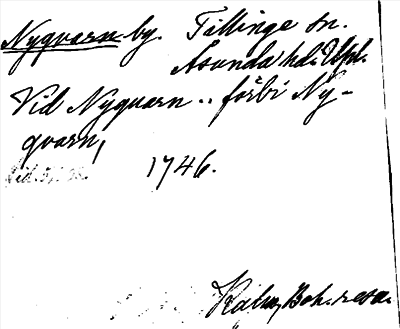 Nyqvarn by. Tillinge sn.
Åsunda hd. Upl.
Vid Nyquarn .. förbi Ny-
quarn,
1746.
Kalm, Boh. resa.